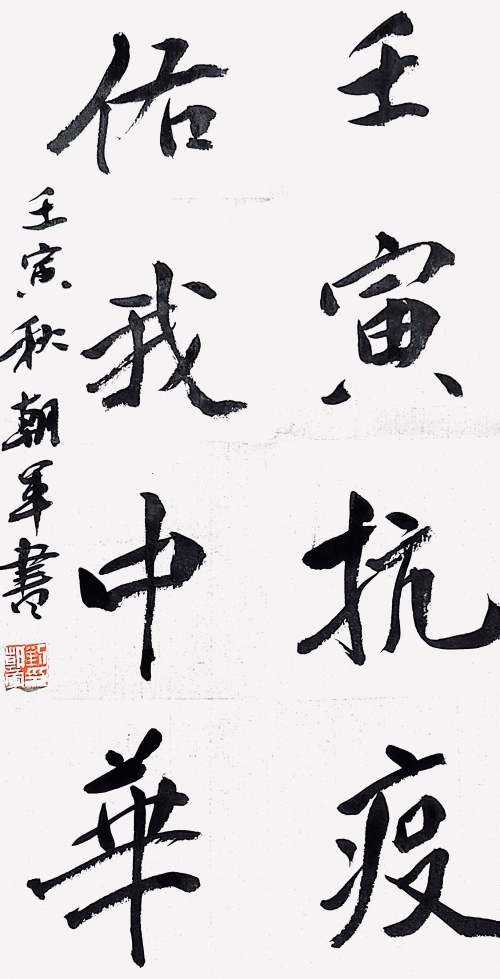 壬寅抗疫
佑我中華
壬寅秋朝軍書